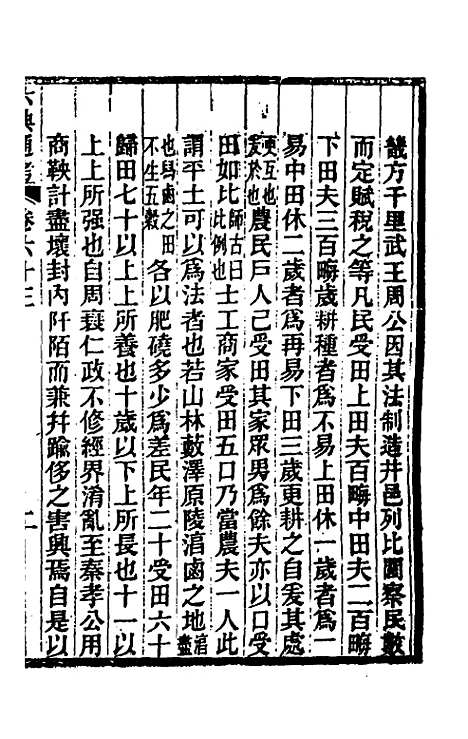 畿方千里武王周公因其法制造井邑列比閭察民數
而定賦稅之等凡民受田上田夫百畮中田夫二百畮
下田夫三百畮歲耕種者爲不易上田休一歲者爲一
易中田休二歲者爲再易下田三歲更耕之自爰其處
更互也爰於也農民戶人已受田其家眾男爲餘夫亦以口受
田如比師古曰此例也士工商家受田五口乃當農夫一人此
謂平土可以爲法者也若山林藪澤原陵淊鹵之地淊盡
也舄鹵之田不生五穀各以肥磽多少爲差民年二十受田六十
歸田七十以上上所養也十歲以下上所長也十一以
上上所强也自周衰仁政不修經界淆亂至秦孝公用
商鞅計盡壞封內阡陌而兼幷踰侈之害興焉自是以
六典通考
卷六十三
二